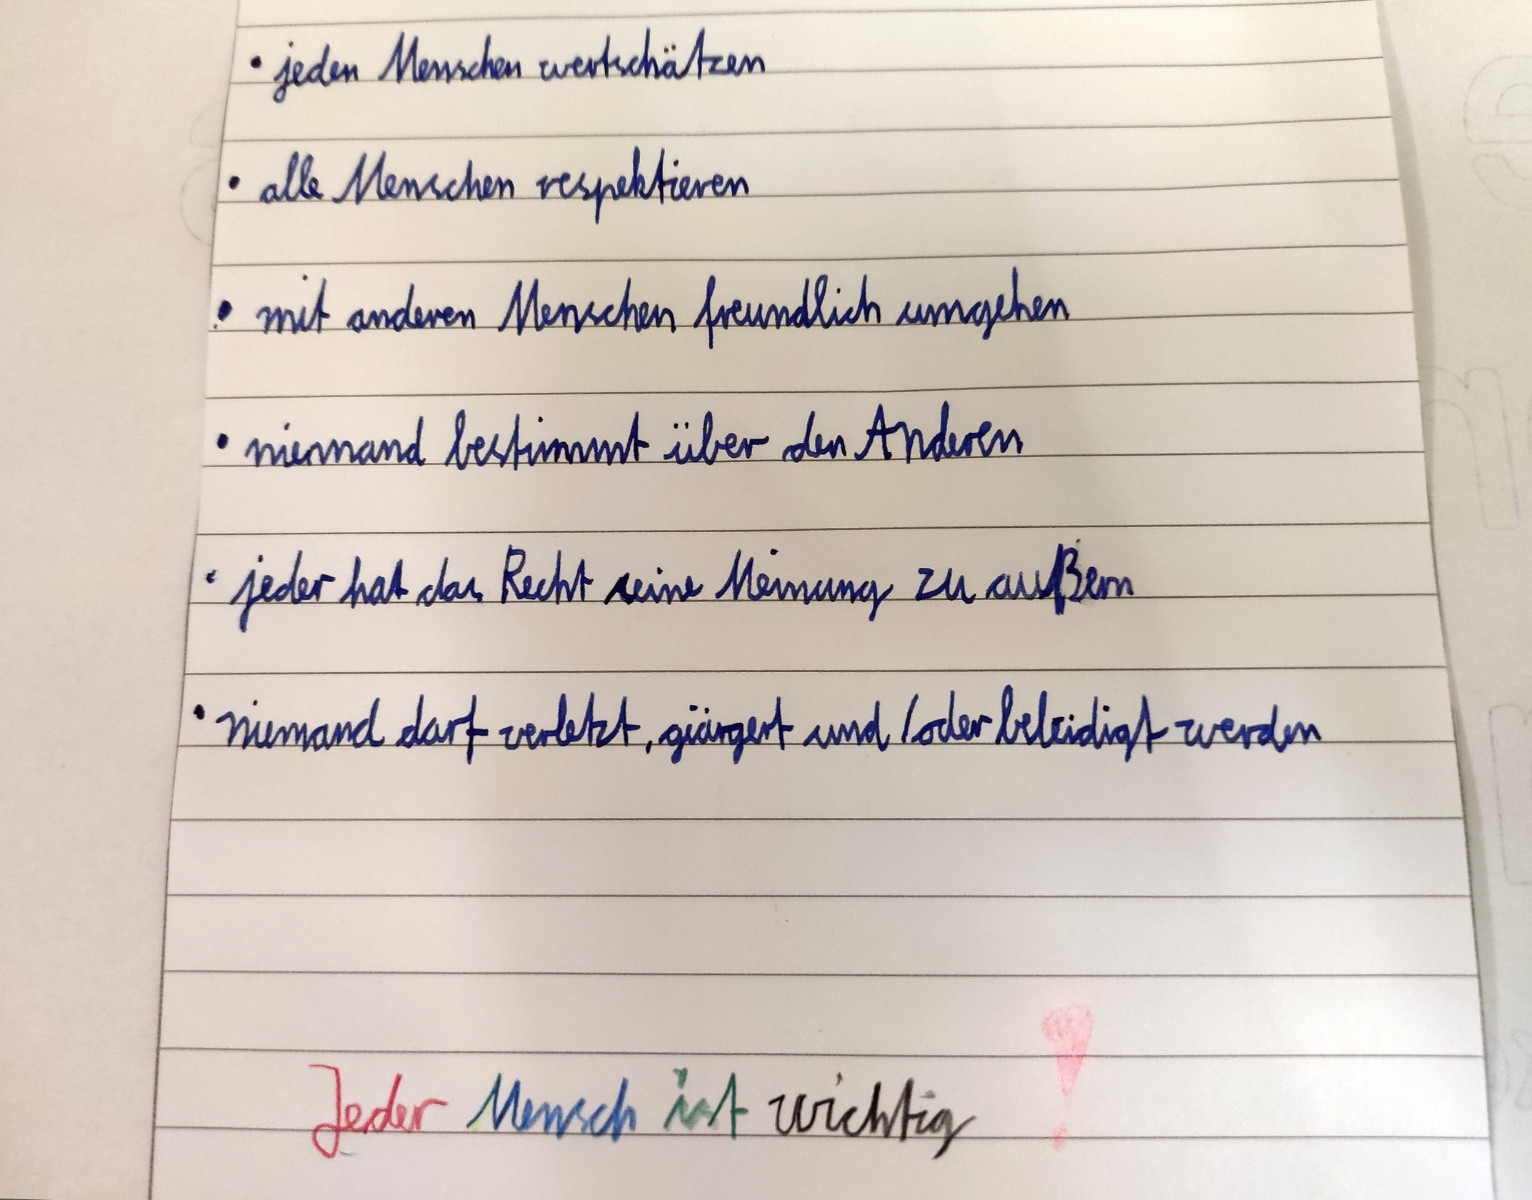 • jeden Menschen wertschätzen
• alle Menschen respektieren
• mit anderen Menschen freundlich umgehen
• niemand bestimmt über den Anderen
• jeder hat das Recht seine Meinung zu außern
• niemand darf verletzt, geärgert und /oder beleidigt werden
Jeder Mensch ist wichtig !